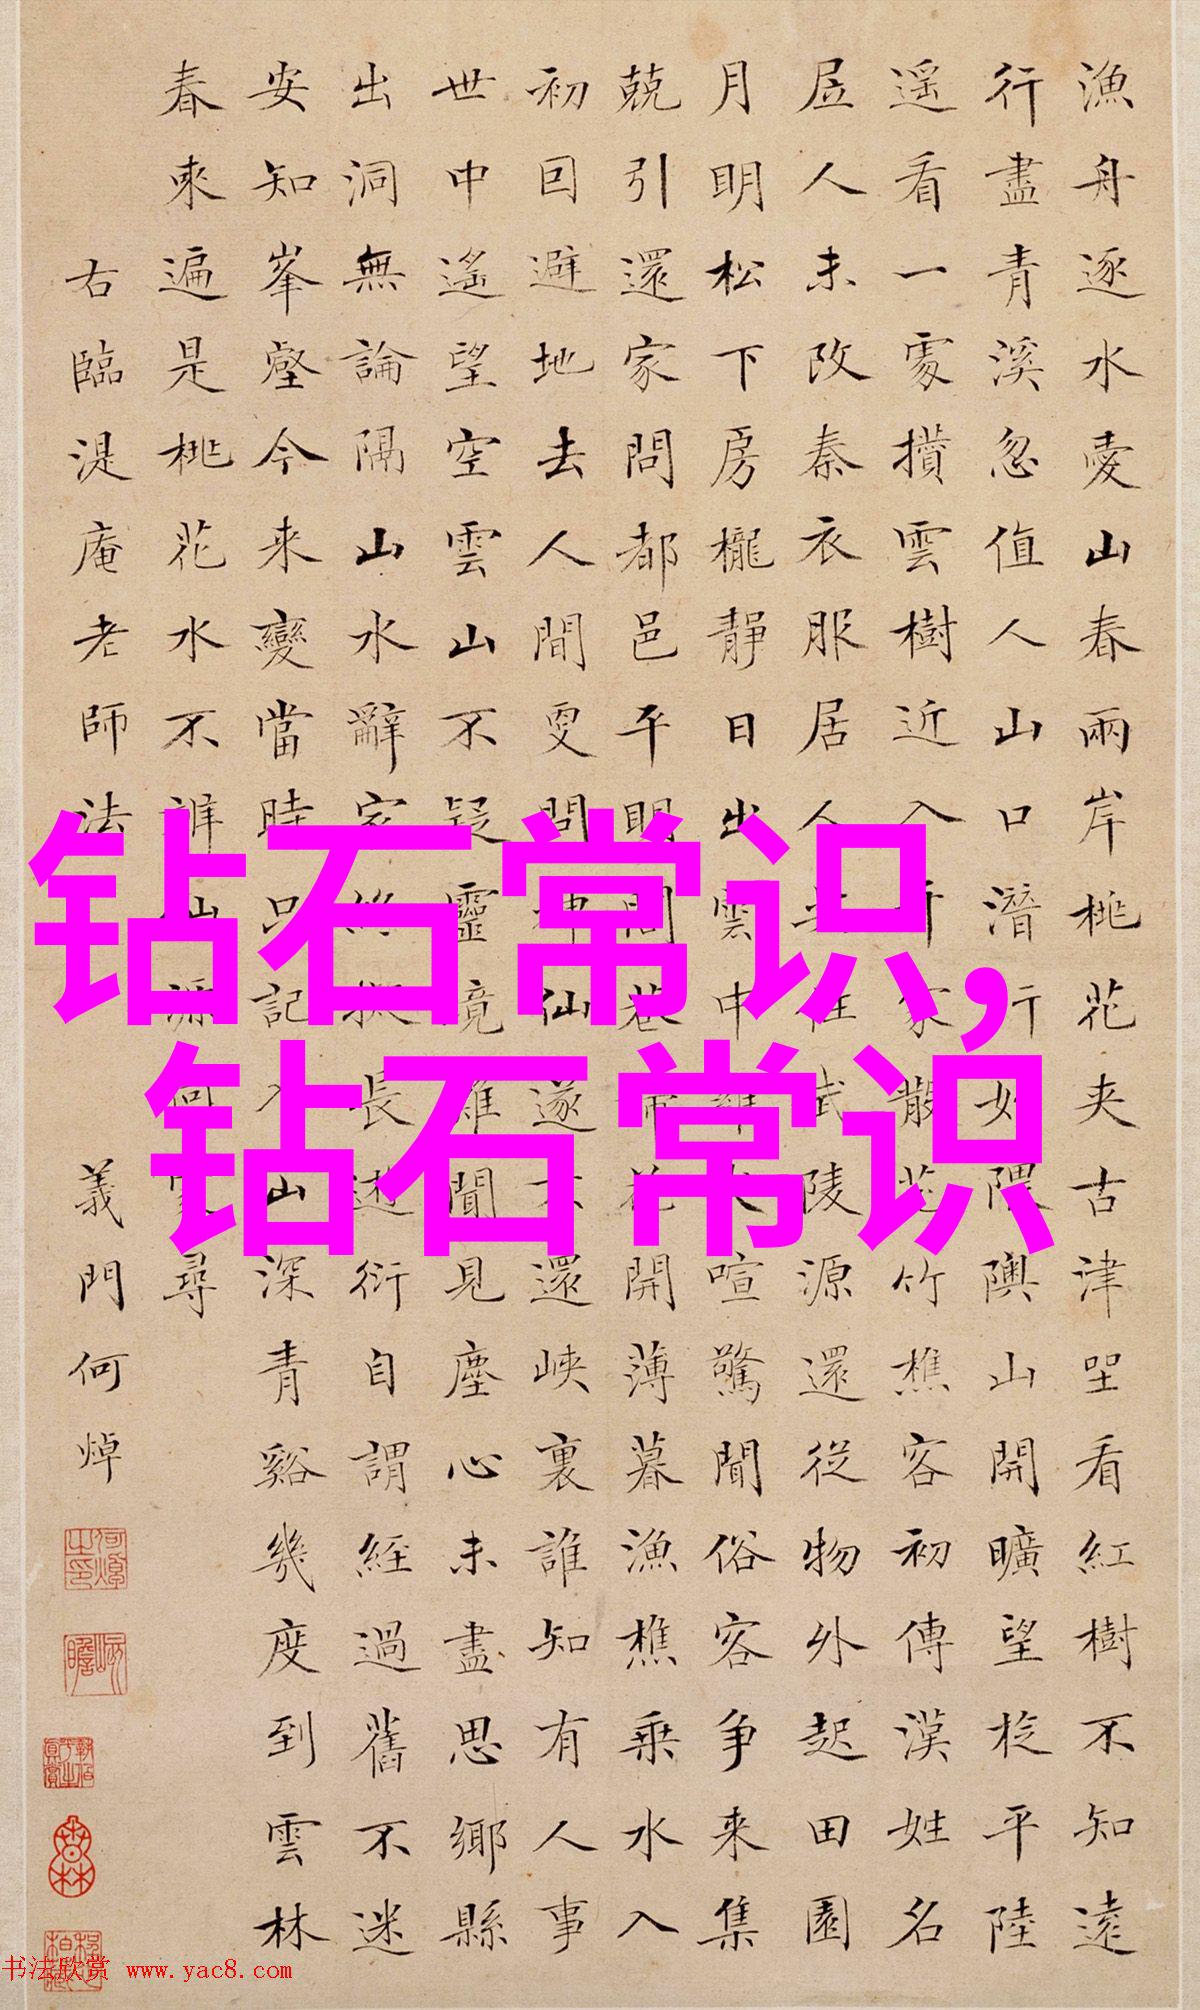 漁舟逐水愛山春兩岸桃花夾古津坐看紅樹不知遠
行盡青溪忽值人山口潛行始隈隩山開曠望旋平陸
遥看一處攢雲樹近入千家散花竹樵客初傳漢姓名
居人未改秦衣服居人共住武陵源還從物外起田園
月明松下房櫳靜日出雲中雞犬喧驚聞俗客争来集
兢引還家問都邑平明閭巷掃花開薄暮漁樵乗水入
初因避地去人間更問神仙遂不還峽裏誰知有人事
世中遙望空雲山不疑靈境難聞見塵心未盡思鄉縣
出洞無論隔山水辭家終擬長遊衍自謂經過舊不迷
安知峯壑今来變當時只記入山深青谿幾度到雲林
春來遍是桃花水不辨仙源何處尋
右臨湜庵老師法 義門何焯
钻石常识,
钻石常识
书法欣赏 www.yac8.com